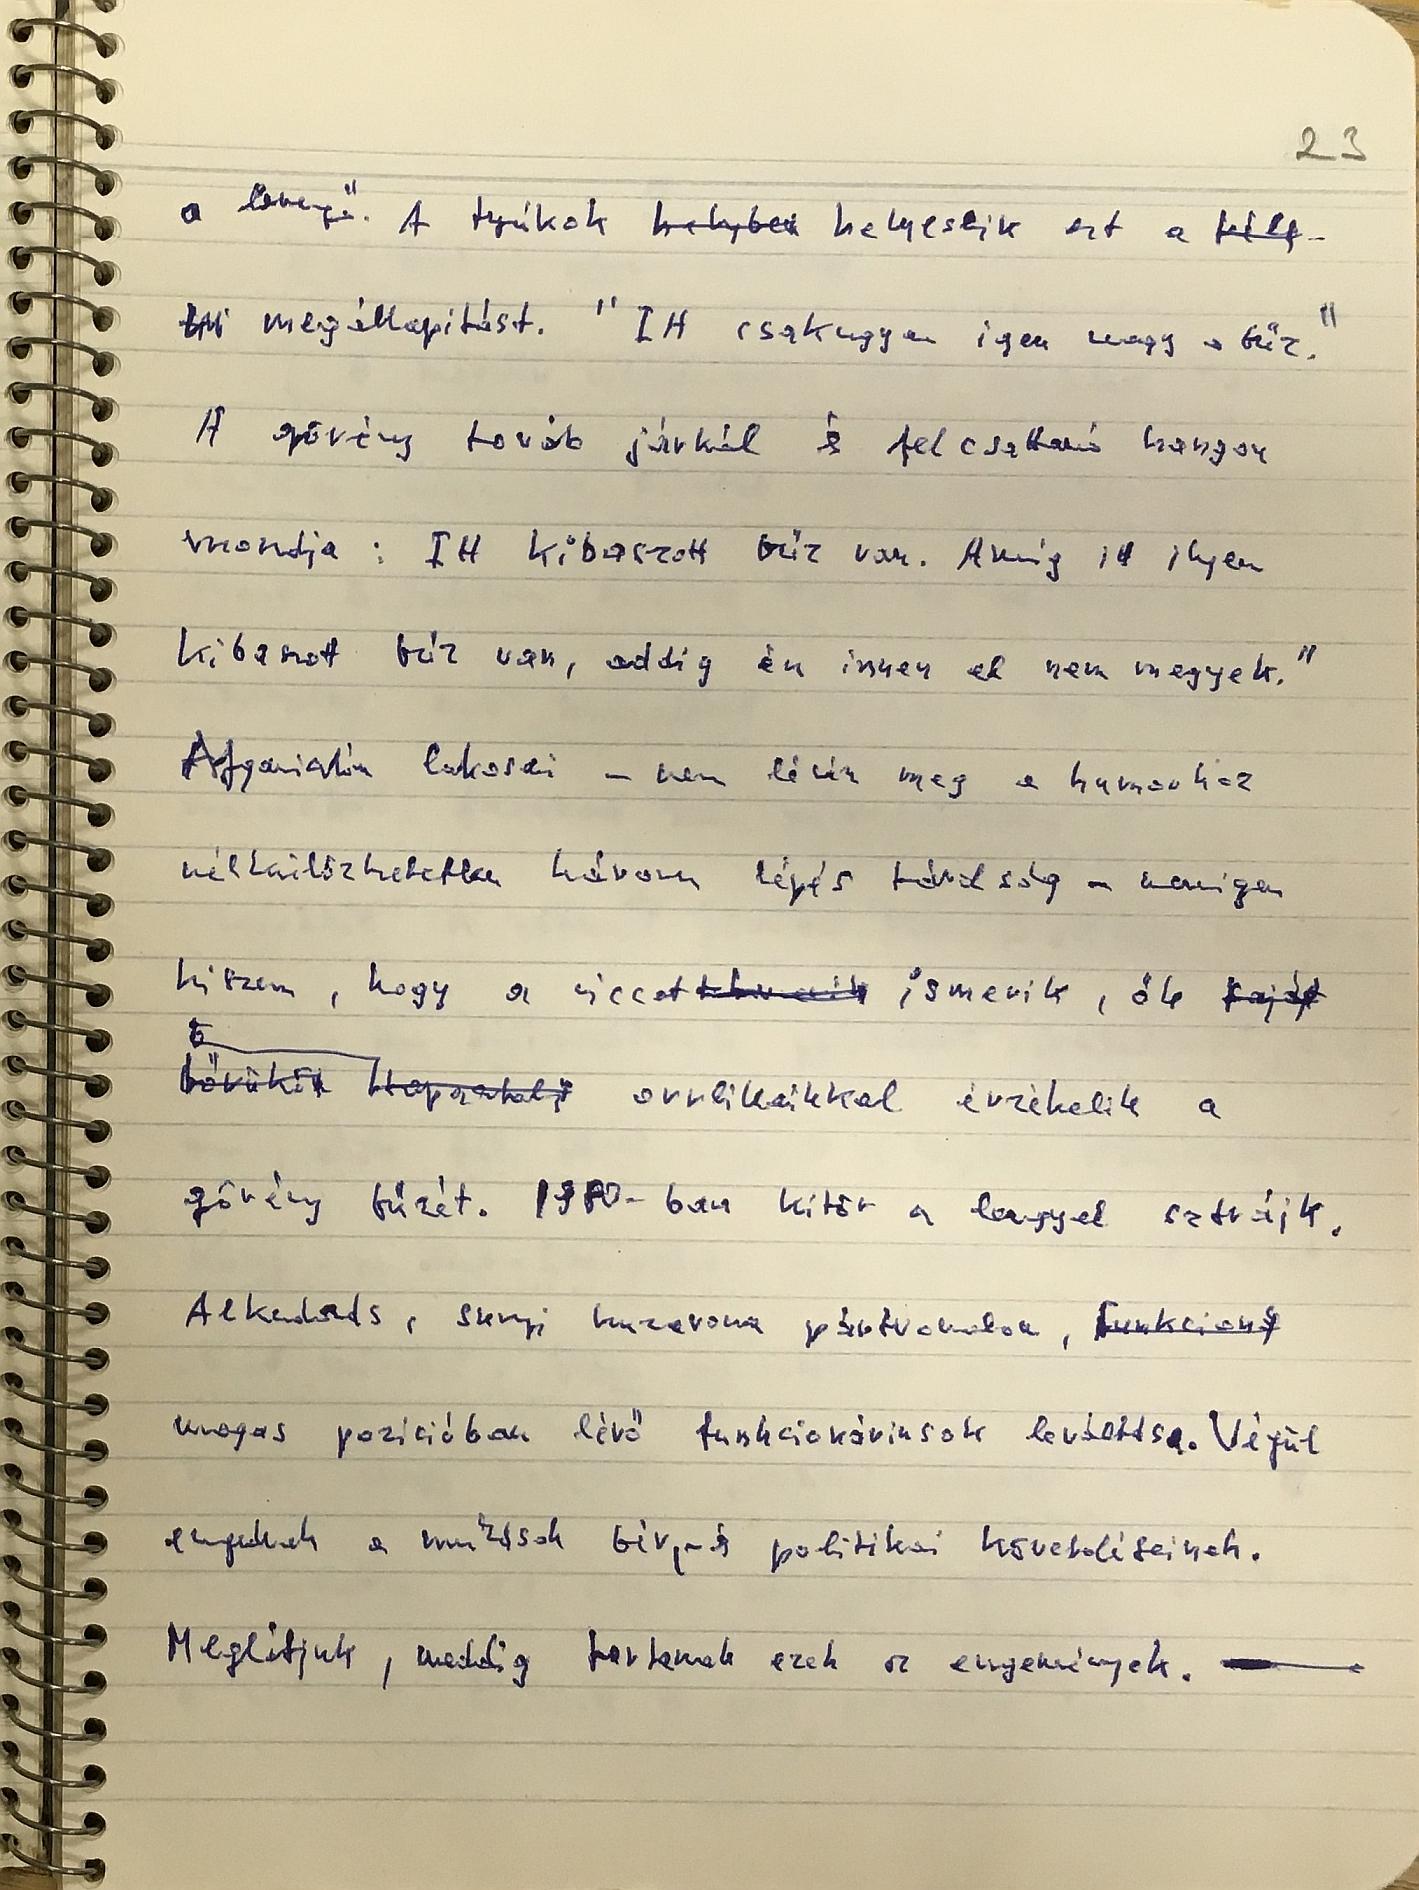 23
a levegő". A tyúkok helyben helyeslik ezt a
megállapítást. "Itt csakugyan igen nagy a bűz."
A görény továb járkál és felcsattanó hangon
mondja: Itt kibaszott bűz van. Amíg itt ilyen
kibaszott bűz van, addig én innen el nem megyek."
Afganistán lakosai – nem lévén meg a humorhoz
nélkülözhetetlen három lépés távolság – nemigen
hiszem, hogy a viccet ismerik, ők saját
bőrükön orrlikaikkal érzékelik a
görény bűzét. 1980-ban kitör a lengyel sztrájk.
Alkudozás, sunyi huzavona pártvonalon, funkcioná
magas pozícióban lévő funkcionáriusok leváltása. Végül
engednek a munkások bér, és politikai követeléseinek.
Meglátjuk, meddig tartanak ezek az engemények.